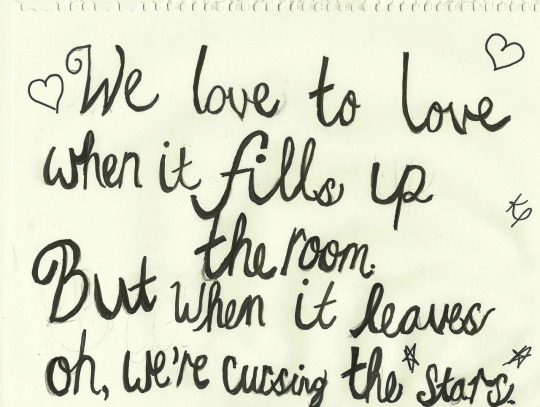 We love to love
when it fills up
the room.
But when it leaves
oh, we're cursing the stars.